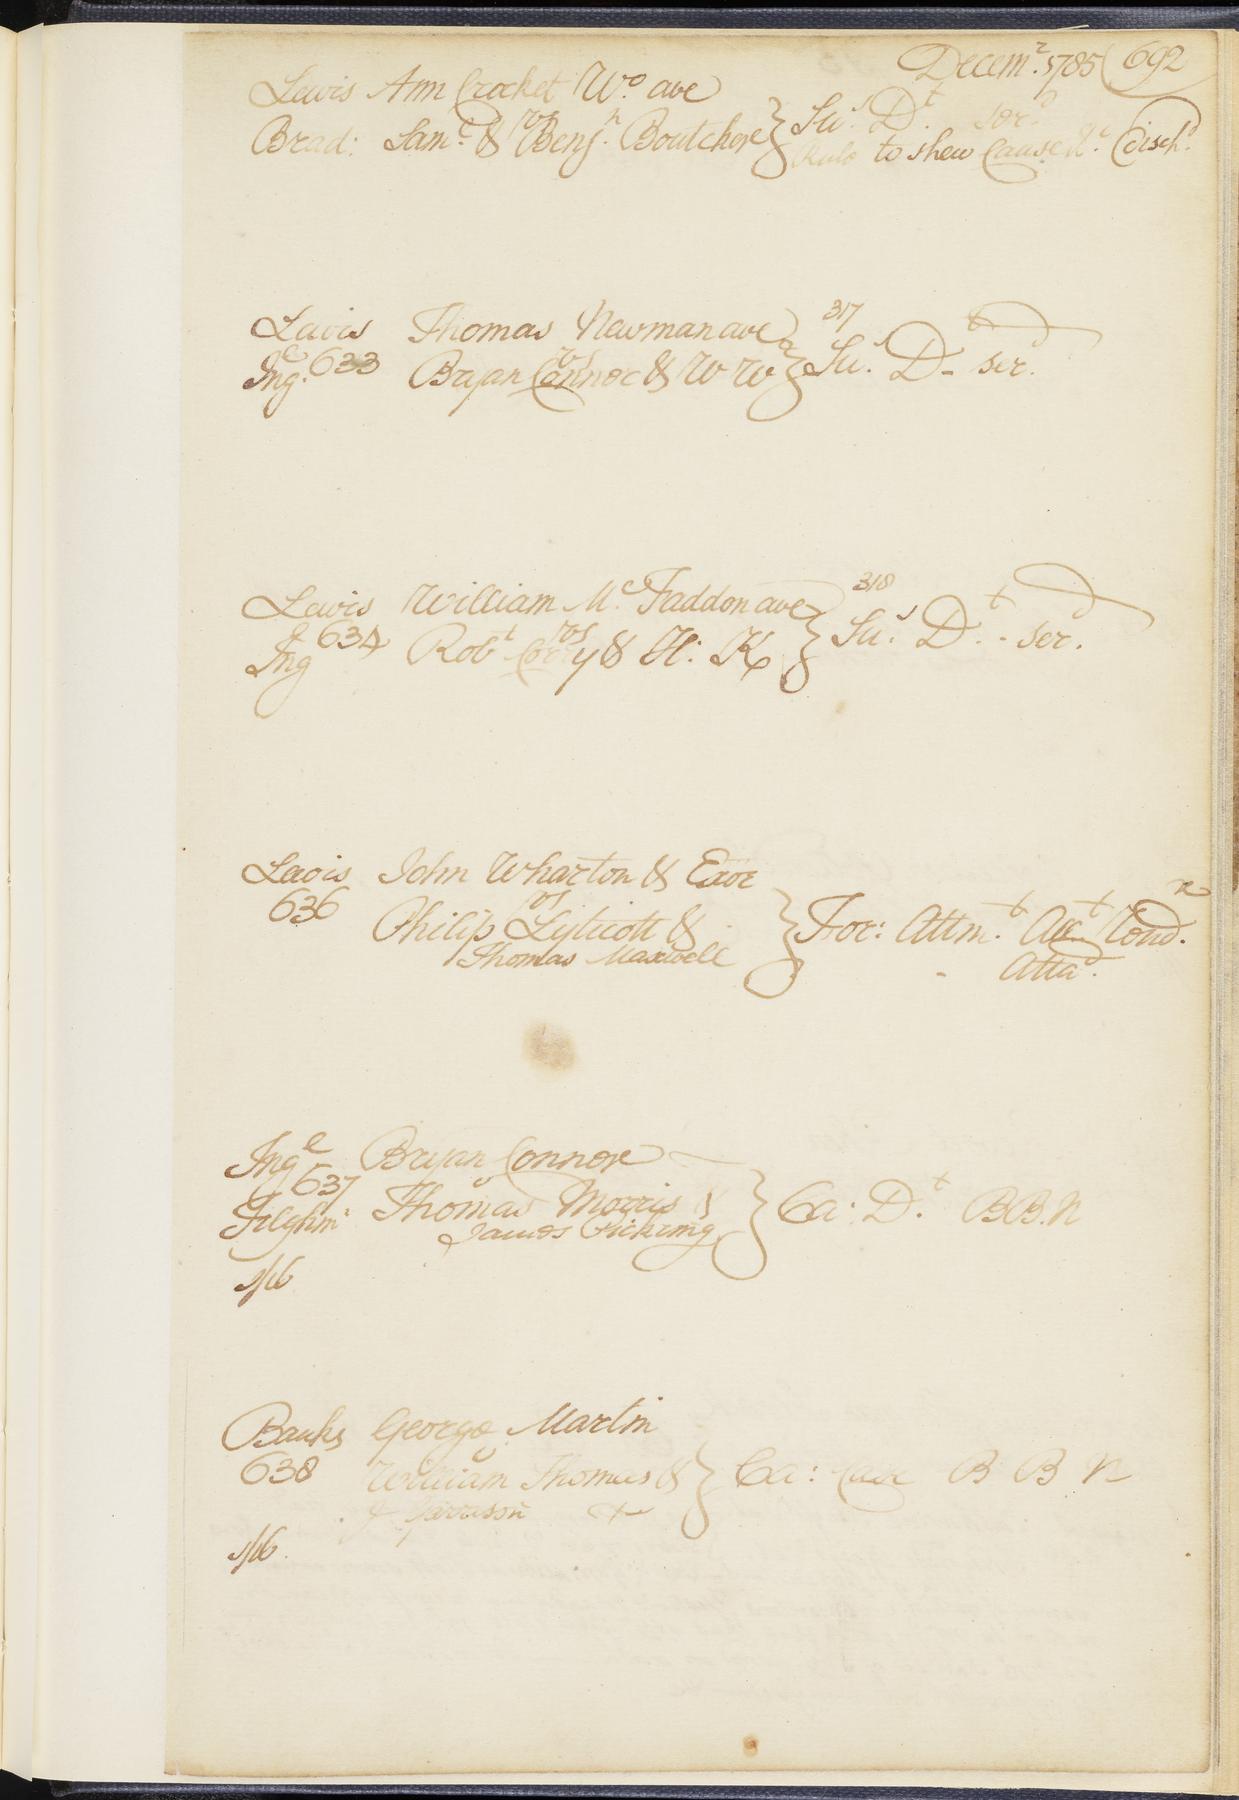 Decem.r 1785 (692
Lewis Ann Crocket Wo. ave
vs
Brad: Sam.l & Benj.n Boutchere } Su.s D.t ser.d
Rule to shew Cause &.c (disch.d
317
Lewis Thomas Newman ave
vs
Ing.e 633 Bryan Connor & W W } Su.s D.t ser.
318
Lewis William Mc. Faddon ave
vs
Ing 634 Robt Cory & H: K } Su.s D.t - ser.
Lewis John Wharton & Exor
vs
636 Philip Lyticott & } For: Attm.t Act. Cond.n
Thomas Maxwell Atta.d
Inge Bryan Connor
637
Tilghm.n Thomas Morris & } Ca: D.t BB.N
James Picking
1/16
Banks George Martin
638 William Thomas & } Ca: Case B B N
J Garrison
1/16